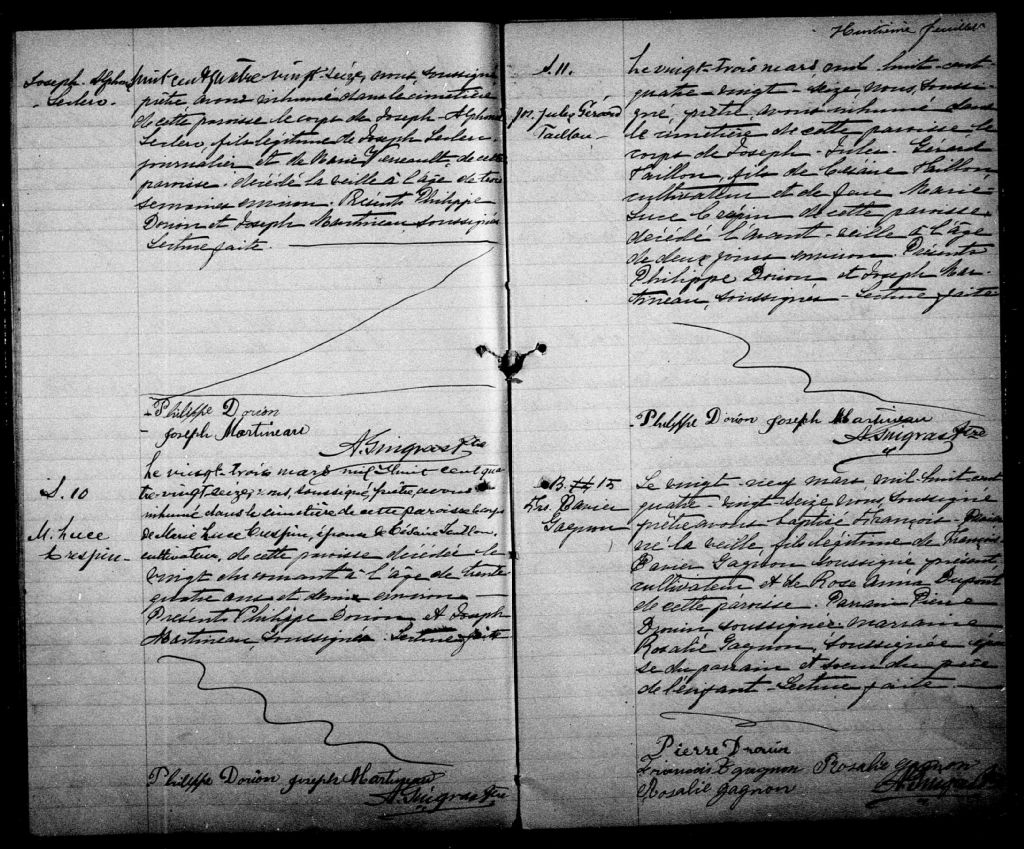 Joseph Alphonse
Leclerc.
huit cent quatre vingt-seize, nous, soussigné
prêtre avons inhumé dans le cimetière
de cette paroisse le corps de Joseph-Alphonse
Leclerc, fils légitime de Joseph Leclerc
journalier et de Marie Veneault de cette
paroisse. décédé la veille à l'âge de trois
semaines environ. Présents Philippe
Dorion et Joseph Martineau, soussignés
Lecture faite.
Philippe Dorion
Joseph Martineau
A. Gingras Ptre
S. 10
M. Luce
Crespin
Le vingt-trois mars mil huit cent qua
tre-vingt seize, nous, soussigné, prêtre, avons
inhumé dans le cimetière de cette paroisse le corps
de Marie Luce Crespin, épouse de Césaire Taillon,
cultivateur, de cette paroisse décédée le
vingt du courant à l'âge de trente
quatre ans et demie environ
Présents Philippe Dorion et Joseph
Martineau, soussignés. Lecture faite
Philippe Dorion Joseph Martineau
A. Gingras Ptre
Huitième feuillet
S. 11.
Jos. Jules Gérard
Taillon
Le vingt-trois mars, mil huit-cent
quatre-vingt-seize, nous, soussi-
gné, prêtre, avons inhumé dans
le cimetière de cette paroisse le
corps de Joseph-Jules Gérard
Taillon, fils de Césaire Taillon
cultivateur et de feue Marie-
Luce Crespin de cette paroisse.
décédé l'avant-veille à l'âge
de deux jours environ. Présents
Philippe Dorion et Joseph Mar-
tineau, soussignés - Lecture faite
Philippe Dorion Joseph Martineau
A. Gingras Ptre
B. 15
Frs. Xavier
Gagnon
Le vingt-neuf mars mil-huit-cent
quatre vingt-seize nous soussigné
prêtre avons baptisé François-Xavier
né la veille, fils légitime de François
Xavier Gagnon soussigné présent,
cultivateur et de Rose Anna Dupont
de cette paroisse. Parrain Pierre
Drouin soussigné marraine
Rosalie Gagnon, soussignée épou
se du parrain et soeur du père
de l'enfant - Lecture faite.
Pierre Drouin
François X gagnon Rosalie gagnon
Rosalie gagnon A. Gingras